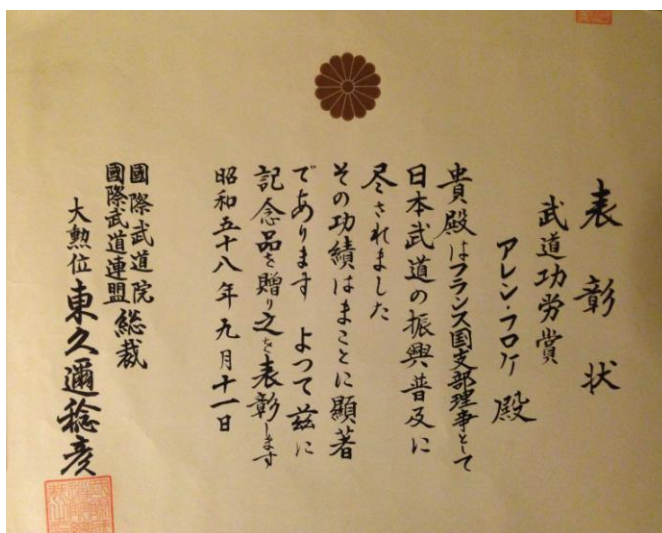 表彰状
武道功労賞
アレン・フロケ 殿
貴殿はフランス国支部理事として
日本武道の振興普及に
尽されました
その功績はまことに顕著
であります よつて茲に
記念品を贈り之を表彰します
昭和五十八年九月十一日
國際武道院
國際武道連盟 総裁
大勲位 東久邇稔彦